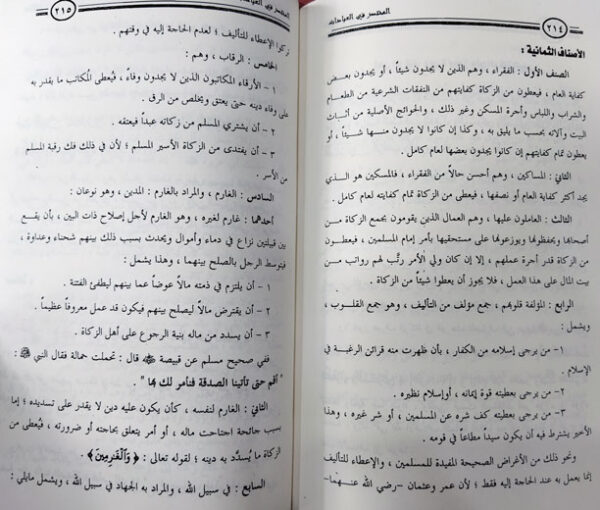 ٢١٤
المختصر في العبادات
الأصناف الثمانية :
الصنف الأول : الفقراء ، وهم الذين لا يجدون شيئاً ، أو يجدون بعض
كفاية العام ، فيعطون من الزكاة كفايتهم من النفقات الشرعية من الطعام
والشراب واللباس وأجرة المسكن وغير ذلك ، والحوائج الأصلية من أثاث
البيت وآلاته بحسب ما يليق به ، وكذا إن كانوا لا يجدون منها شيئاً ، أو
يعطون تمام كفايتهم إن كانوا يجدون بعضها لعام كامل .
الثاني : المساكين ، وهم أحسن حالاً من الفقراء ، فالمسكين هو الذي
يجد أكثر كفاية العام أو نصفها ، فيعطى من الزكاة تمام كفايته لعام كامل .
الثالث : العاملون عليها ، وهم العمال الذين يقومون بجمع الزكاة من
أصحابها ويحفظونها ويوزعونها على مستحقيها بأمر إمام المسلمين ، فيعطون
من الزكاة قدر أجرة عملهم ، إلا إن كان ولي الأمر رتَّب لهم رواتب من
بيت المال على هذا العمل ، فلا يجوز أن يعطوا شيئاً من الزكاة .
الرابع : المؤلفة قلوبهم ، جمع مؤلف من التأليف ، وهو جمع القلوب ،
ويشمل :
١- من يرجى إسلامه من الكفار ، بأن ظهرت منه قرائن الرغبة في
الإسلام .
٢- من يرجى بعطيته قوة إيمانه ، أوإسلام نظيره .
٣- من يرجى بعطيته كف شره عن المسلمين ، أو شر غيره ، وهذا
الأخير يشترط فيه أن يكون سيداً مطاعاً في قومه .
ونحو ذلك من الأغراض الصحيحة المفيدة للمسلمين ، والإعطاء للتأليف
إنما يعمل به عند الحاجة إليه فقط ؛ لأن عمر وعثمان -رضي الله عنهما-
المختصر في العبادات
٢١٥
تركوا الإعطاء للتأليف ؛ لعدم الحاجة إليه في وقتهم .
الخامس : الرقاب ، وهم :
١ - الأرقاء المكاتبون الذين لا يجدون وفاءً ، فيُعطى المُكاتب ما يقدر به
على وفاء دينه حتى يعتق ويخلص من الرق .
٢ - أن يشتري المسلم من زكاته عبداً فيعتقه .
٣ - أن يفتدى من الزكاة الأسير المسلم ؛ لأن في ذلك فك رقبة المسلم
من الأسر .
السادس : الغارم ، والمراد بالغارم : المدين ، وهو نوعان :
أحدهما : غارم لغيره ، وهو الغارم لأجل إصلاح ذات البين ، بأن يقع
بين قبيلتين نزاع في دماء وأموال ويحدث بسبب ذلك بينهم شحناء وعداوة ،
فيتوسط الرجل بالصلح بينهما ، وهذا يشمل :
١ - أن يلتزم في ذمته مالاً عوضاً عما بينهم ليطفئ الفتنة .
٢ - أن يقترض مالاً ليصلح بينهم فيكون قد عمل معروفاً عظيماً .
٣ - أن يسدد من ماله بنية الرجوع على أهل الزكاة .
ففي صحيح مسلم عن قبيصة ﵁ قال : تحملت حمالة فقال النبي ﷺ :
" أقم حتى تأتينا الصدقة فنأمر لك بها " .
الثاني : الغارم لنفسه ، كأن يكون عليه دين لا يقدر على تسديده ؛ إما
بسبب جائحة اجتاحت ماله ، أو أمر يتعلق بحاجته أو ضرورته ، فيُعطى من
الزكاة ما يُسدّد به دينه ؛ لقوله تعالى : ﴿ وَالْغَارِمِينَ ﴾ .
السابع : في سبيل الله ، والمراد به الجهاد في سبيل الله ، ويشمل مايلي :